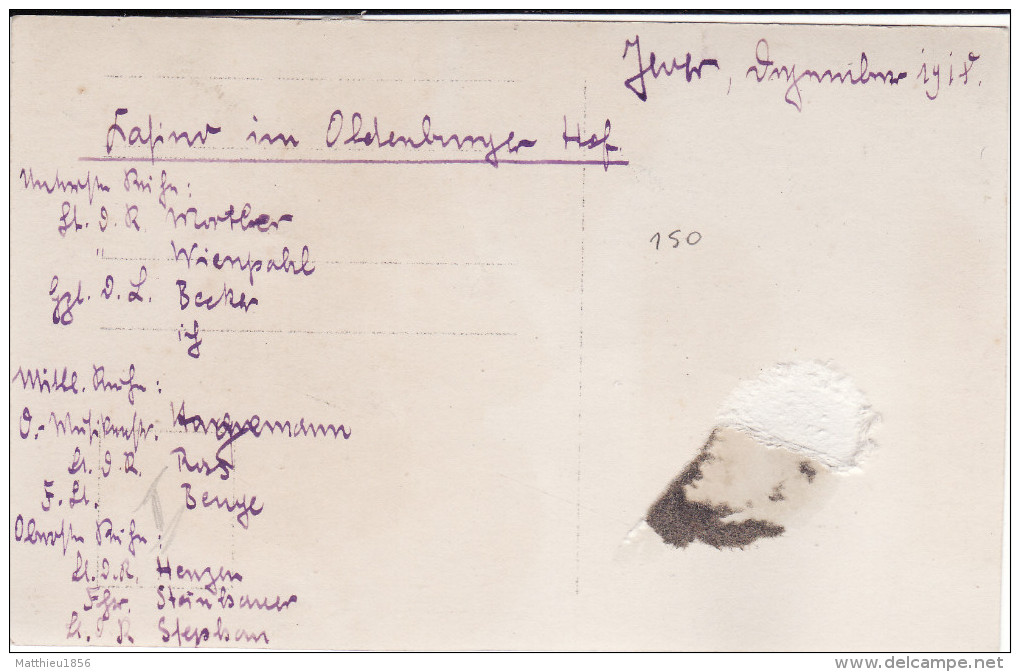 Jever, Dezember 1918.
Kasino im Oldenburger Hof.
Unterste Reihe:
Lt. d. R. Mörtber
" Wienpahl
Fzl. d. L. Becker
ich
150
Mittl. Reihe:
O.-Musikmstr. Hagemann
Lt. d. R. Ross
F. Lt. Benze
Oberste Reihe:
Lt. d. R. Henzen
Fhr. Steinbauer
Lt. d. R Stephan
Matthieu1856
delcampe.net